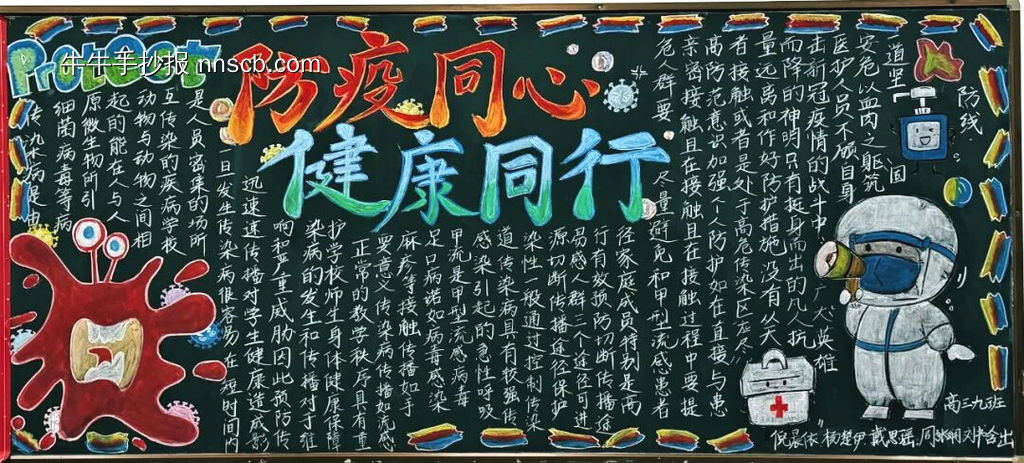 Protect
牛牛手抄报 nnscb.com
防疫同心
健康同行
传染病是由
细菌病毒等病
原微生物所引
起的能在人与人
动物与动物之间相
互传染的疾病学校
是人员密集的场所
一旦发生传染病很容易在短时间内
迅速速传播对学生健康造成影
响和严重威胁因此预防传
染病的发生和传播对于维
护学校师生身体健康保障
正常的教学秩序具有重
要意义传染病传播如流感
麻疹等接触传播如手
足口病诺如病毒感染
甲流是甲型流感病毒
感染引起的急性呼吸
道传染病具有较强传
染性一般通过控制传染
源切断传播途径保护
易感人群三个途径可进
行有效预防切断传播途
径家庭成员特别是高
危人群要尽量避免和甲型流感患者
亲密接触且在接触且在接触过程中要提
高防范意识加强个人防护如在直接与患
者接触或者是处于高危传染区
量远离和作好防护措施没有从天
而降的神明只有挺身而出的凡人抗
击新冠疫情的战斗中广大英雄
医护人员不顾自身
安危以血肉之躯筑
道坚固
防线
高三九班